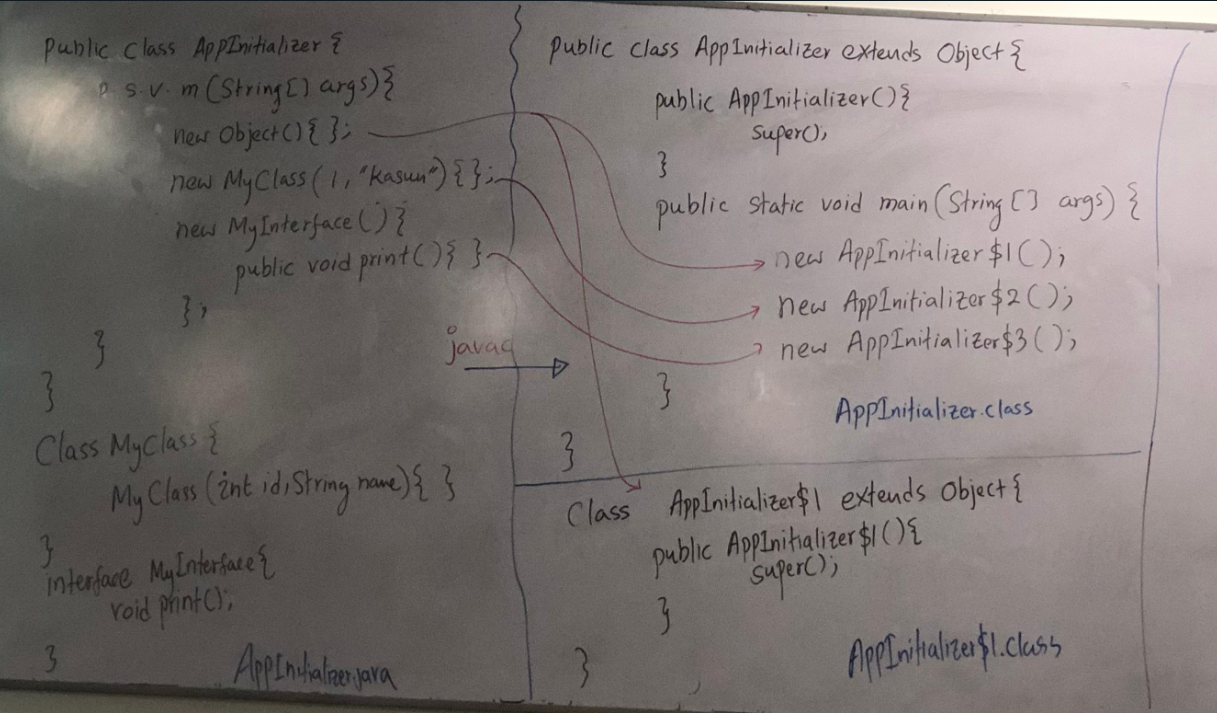 public class AppInitializer {
p. s. v. m (String[] args){
new Object(){ };
new MyClass(1, "Kasun"){ };
new MyInterface(){
public void print(){ }
};
}
}
Class MyClass {
MyClass (int id, String name){ }
}
interface MyInterface{
void print();
}
AppInitializer.java
javac
public class AppInitializer extends Object{
public AppInitializer(){
super();
}
public static void main(String [] args) {
new AppInitializer$1();
new AppInitializer$2();
new AppInitializer$3();
}
AppInitializer.class
}
Class AppInitializer$1 extends Object{
public AppInitializer$1(){
super();
}
AppInitializer$1.class
}